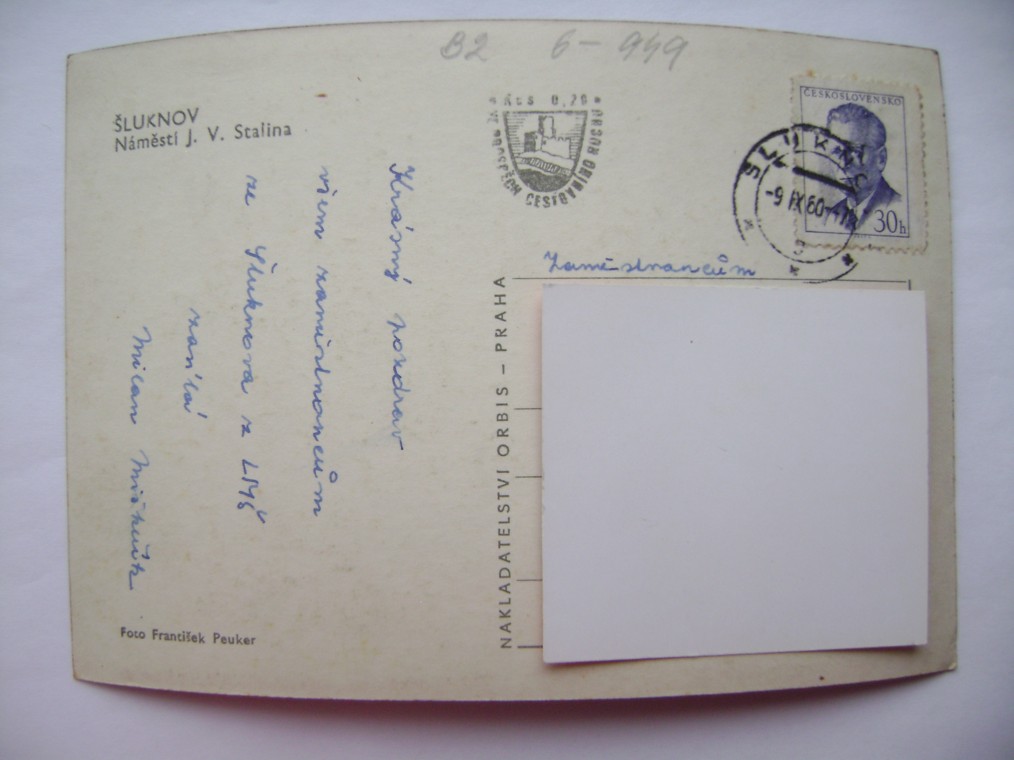 B2 6-949
ŠLUKNOV
Náměstí J. V. Stalina
Krásný pozdrav
všem zaměstnancům
ze Šluknova z LMŠ
zasílá
Milan
Foto František Peuker
NAKLADATELSTVÍ ORBIS – PRAHA
Kčs 0,20
VE PROSPĚCH CESTOVNÍHO RUCHU
ČESKOSLOVENSKO
30h
ŠLUKNOV
-9.IX.60
Zaměstnancům